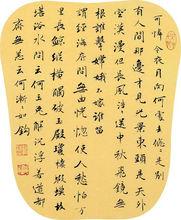 可憐今夕月向何處去悠悠是別
有人間那邊才見光景東頭是天外
空汗漫但長風浩浩送中秋飛鏡無
根誰繫姮娥不嫁誰留謂
經海底問無由恍惚使人愁怕万
里長鯨縱橫觸破玉殿瓊樓蝦蟆故
堪浴水問云何玉兔解沉浮若道都
齊無恙云何漸如鉤